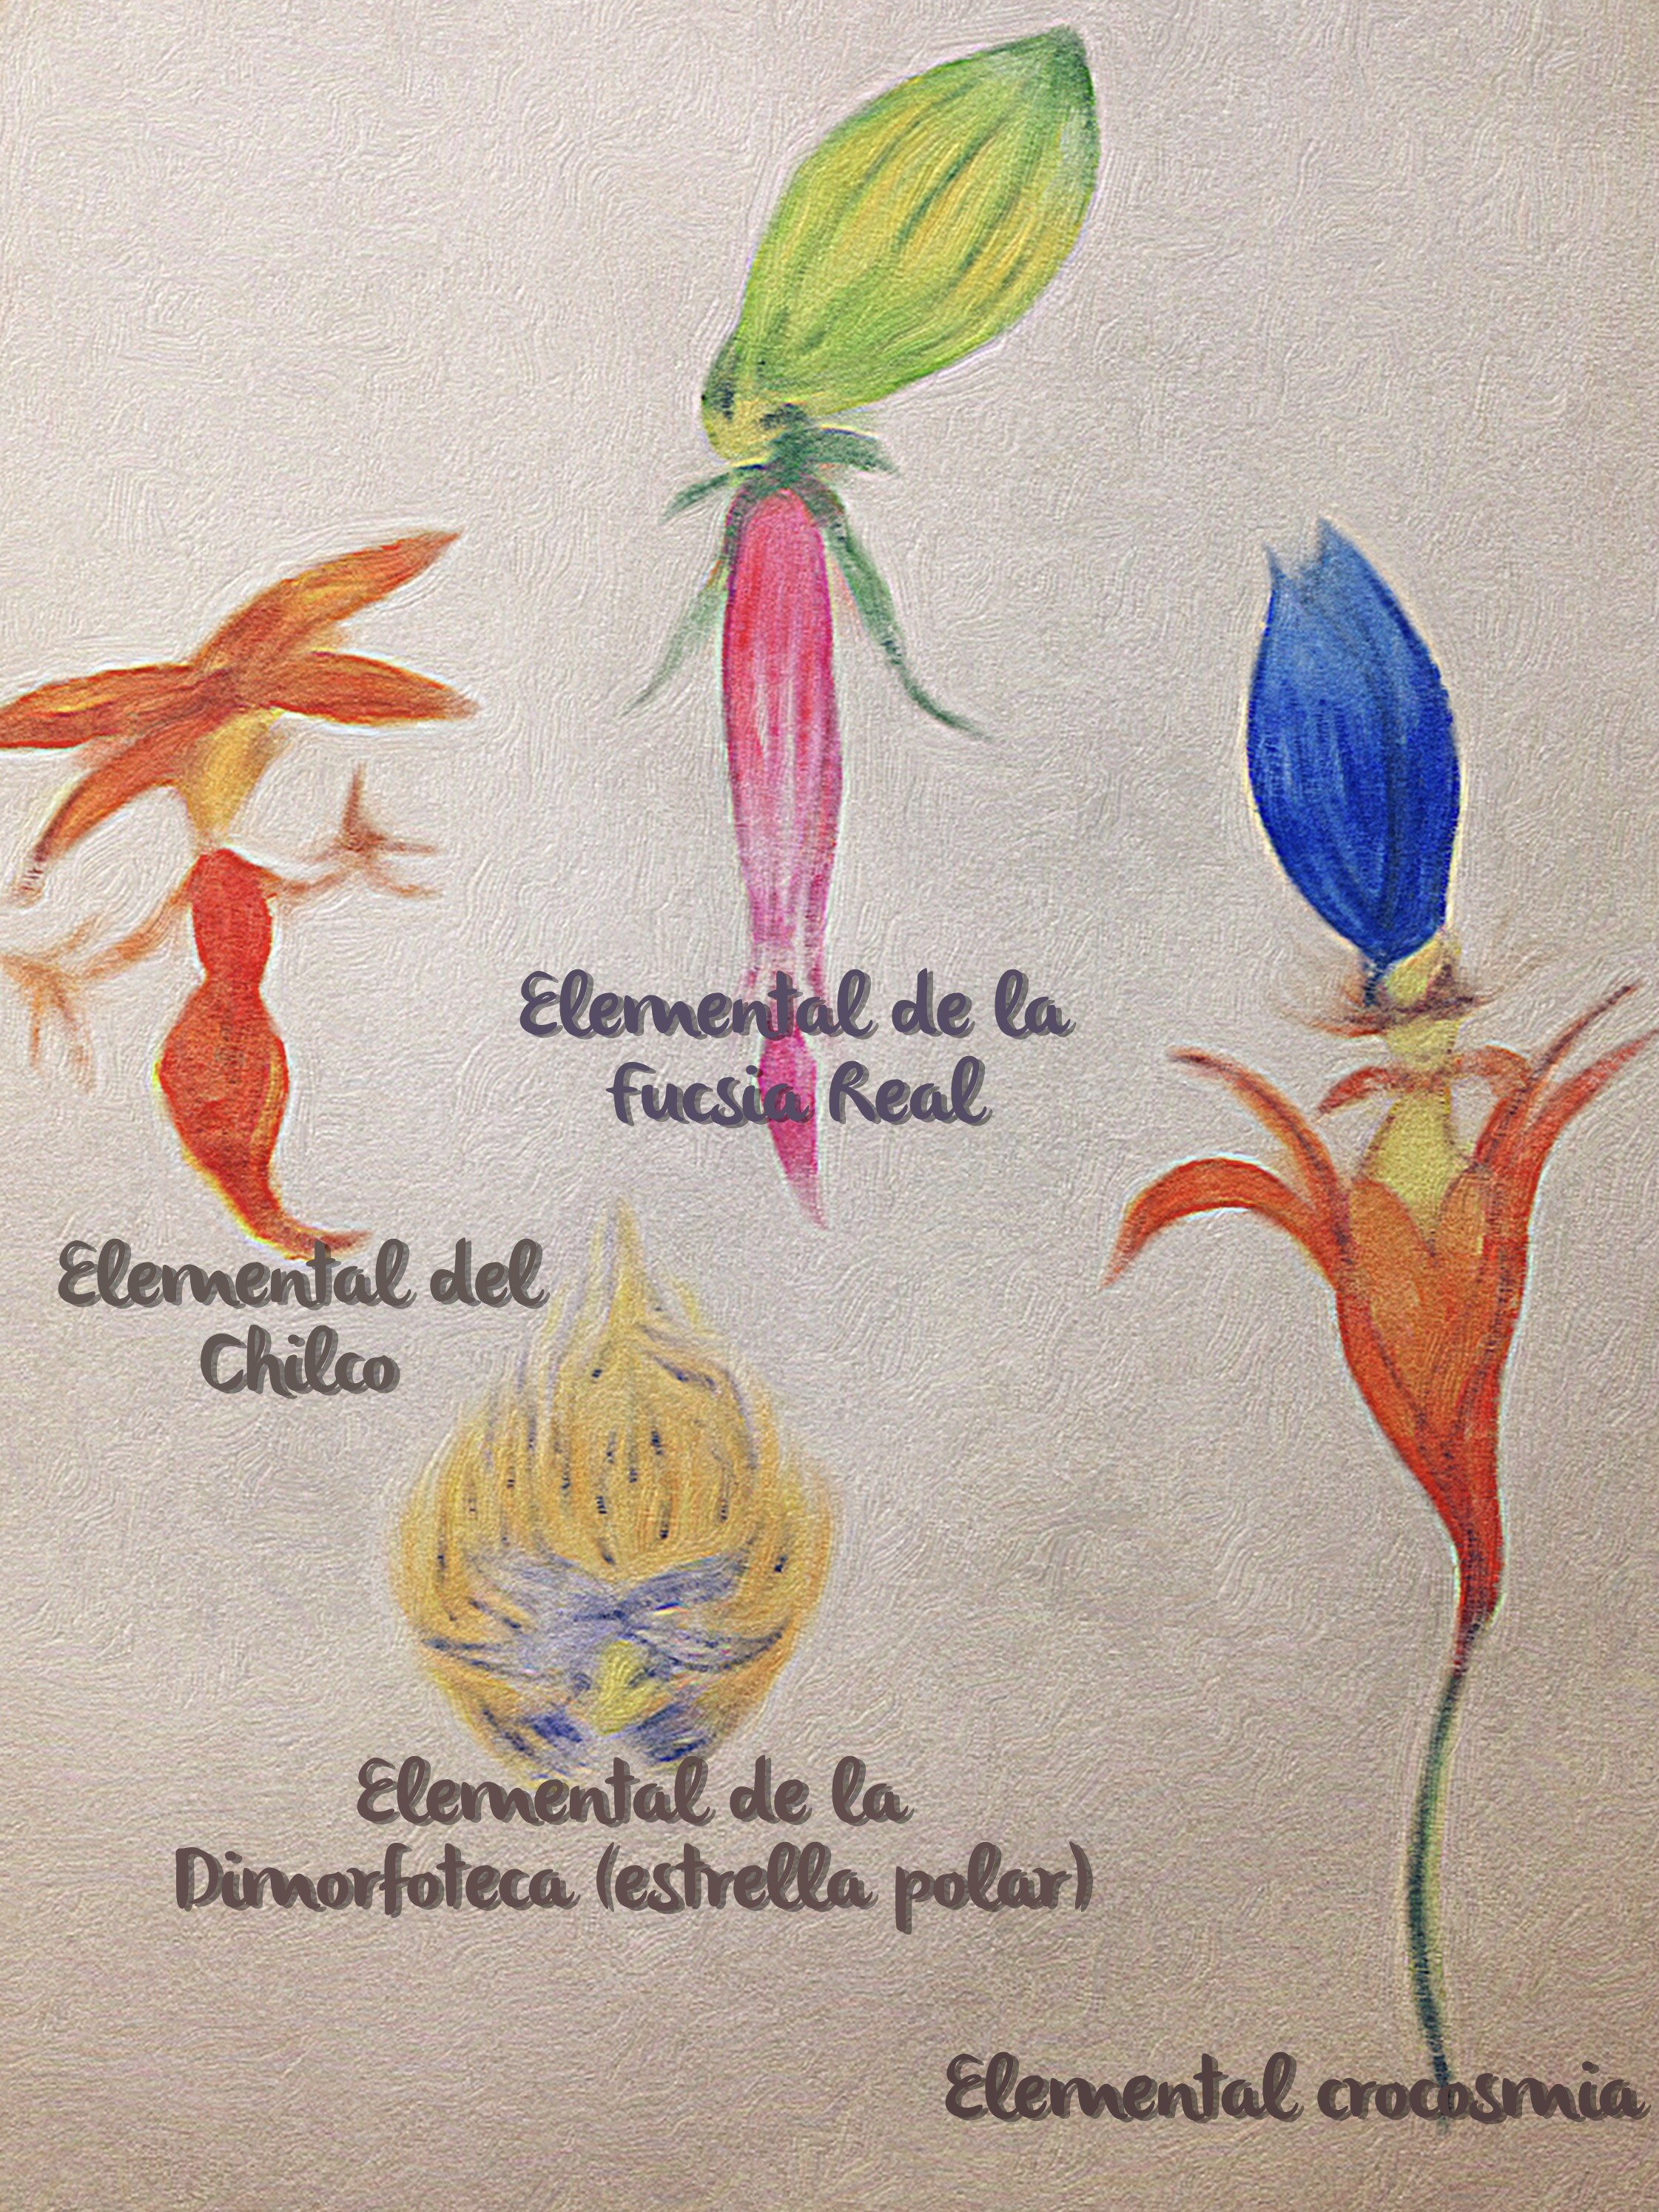 Elemental de la
fucsia Real
Elemental del
Chilco
Elemental de la
Dimorfoteca (estrella polar)
Elemental crocosmia